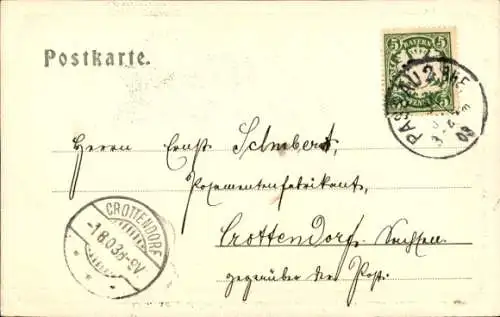 Postkarte.
5 BAYERN 5
PFENNIG
PASSAU 2 BHF.
03
Herrn Ernst Schubert,
Posamentenfabrikant,
Crottendorf, Sachsen
gegenüber der Post.
CROTTENDORF
-1.8.03.8-9V